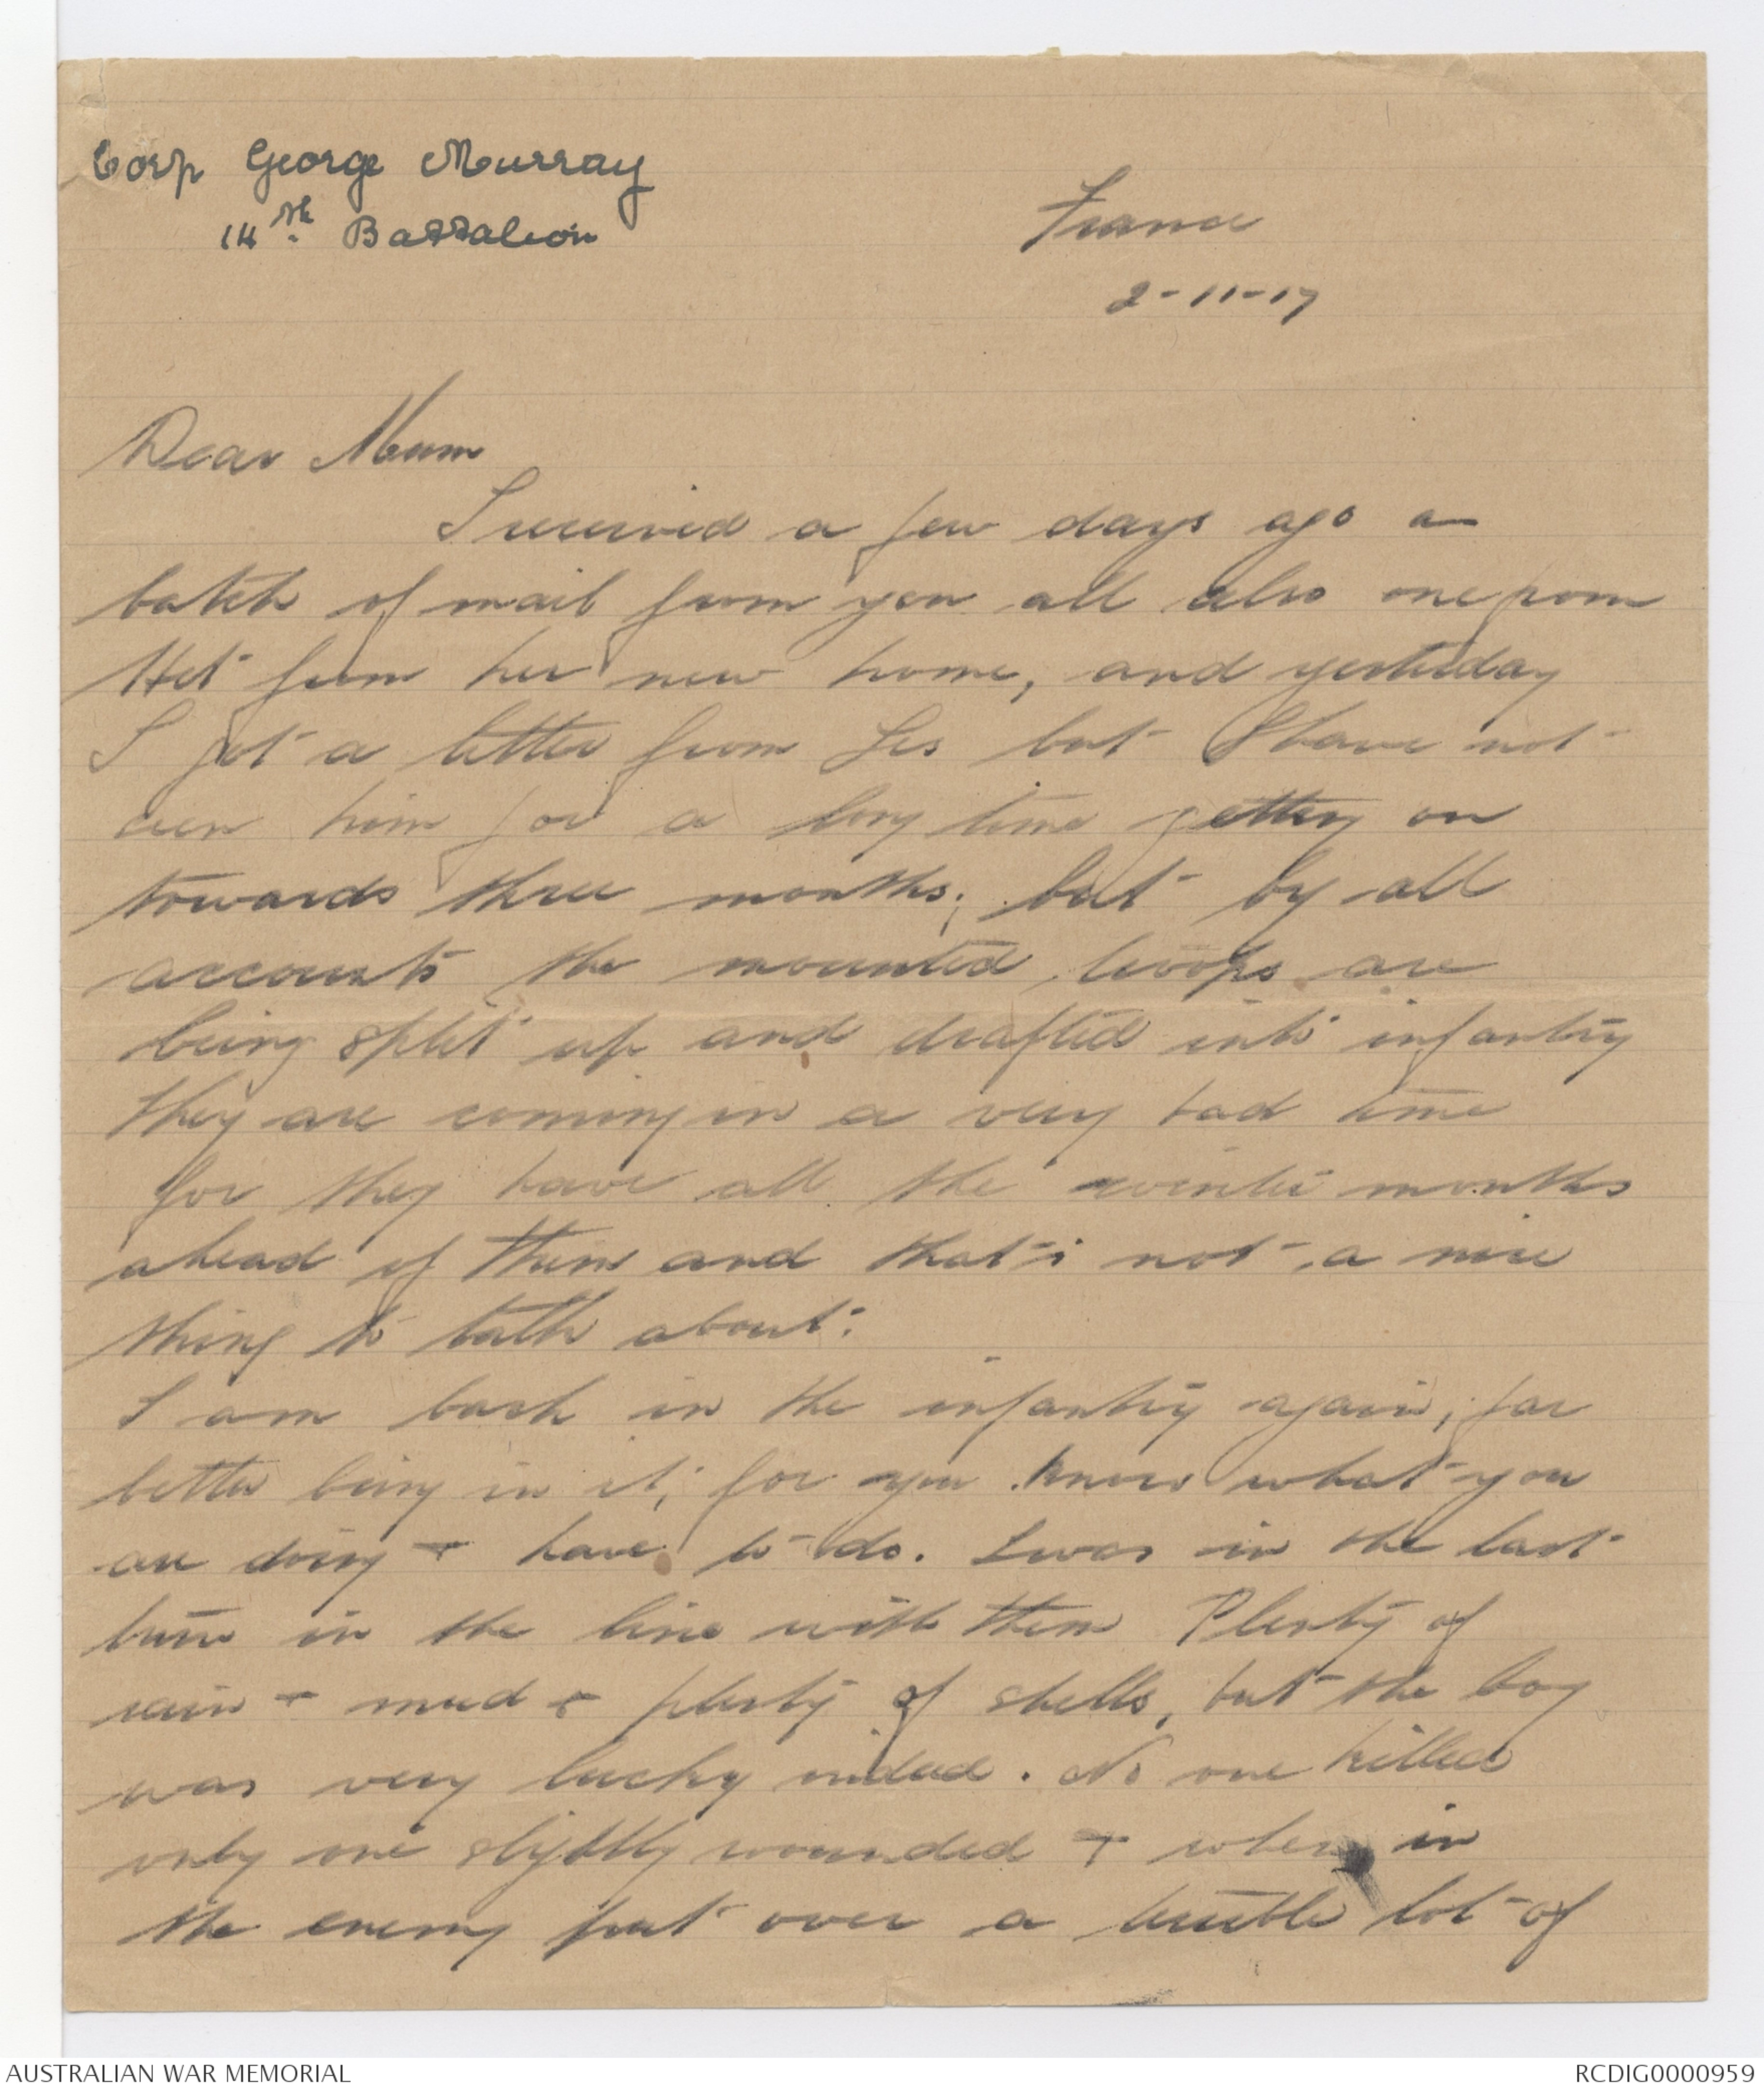 Corp George Murray
14th. Battalion
France
2-11-17
Dear Mum
I received a few days ago a
batch of mail from you all also one from
Het from her new home, and yesterday
I got a letter from Les but I have not
seen him for a long time getting on
towards three months; but by all
accounts the mounted troops are
being split up and drafted into infantry
they are coming in a very bad time
for they have all the winter months
ahead of them and that's not a nice
thing to talk about.
I am back in the infantry again, far
better being in it, for you know what you
are doing + have to do. I was in the last
turn in the line with them Plenty of
rain + mud + plenty of shells, but the boy
was very lucky indeed. No one killed
only one slightly wounded + when in
the enemy put over a terrible lot of
AUSTRALIAN WAR MEMORIAL
RCDIG0000959